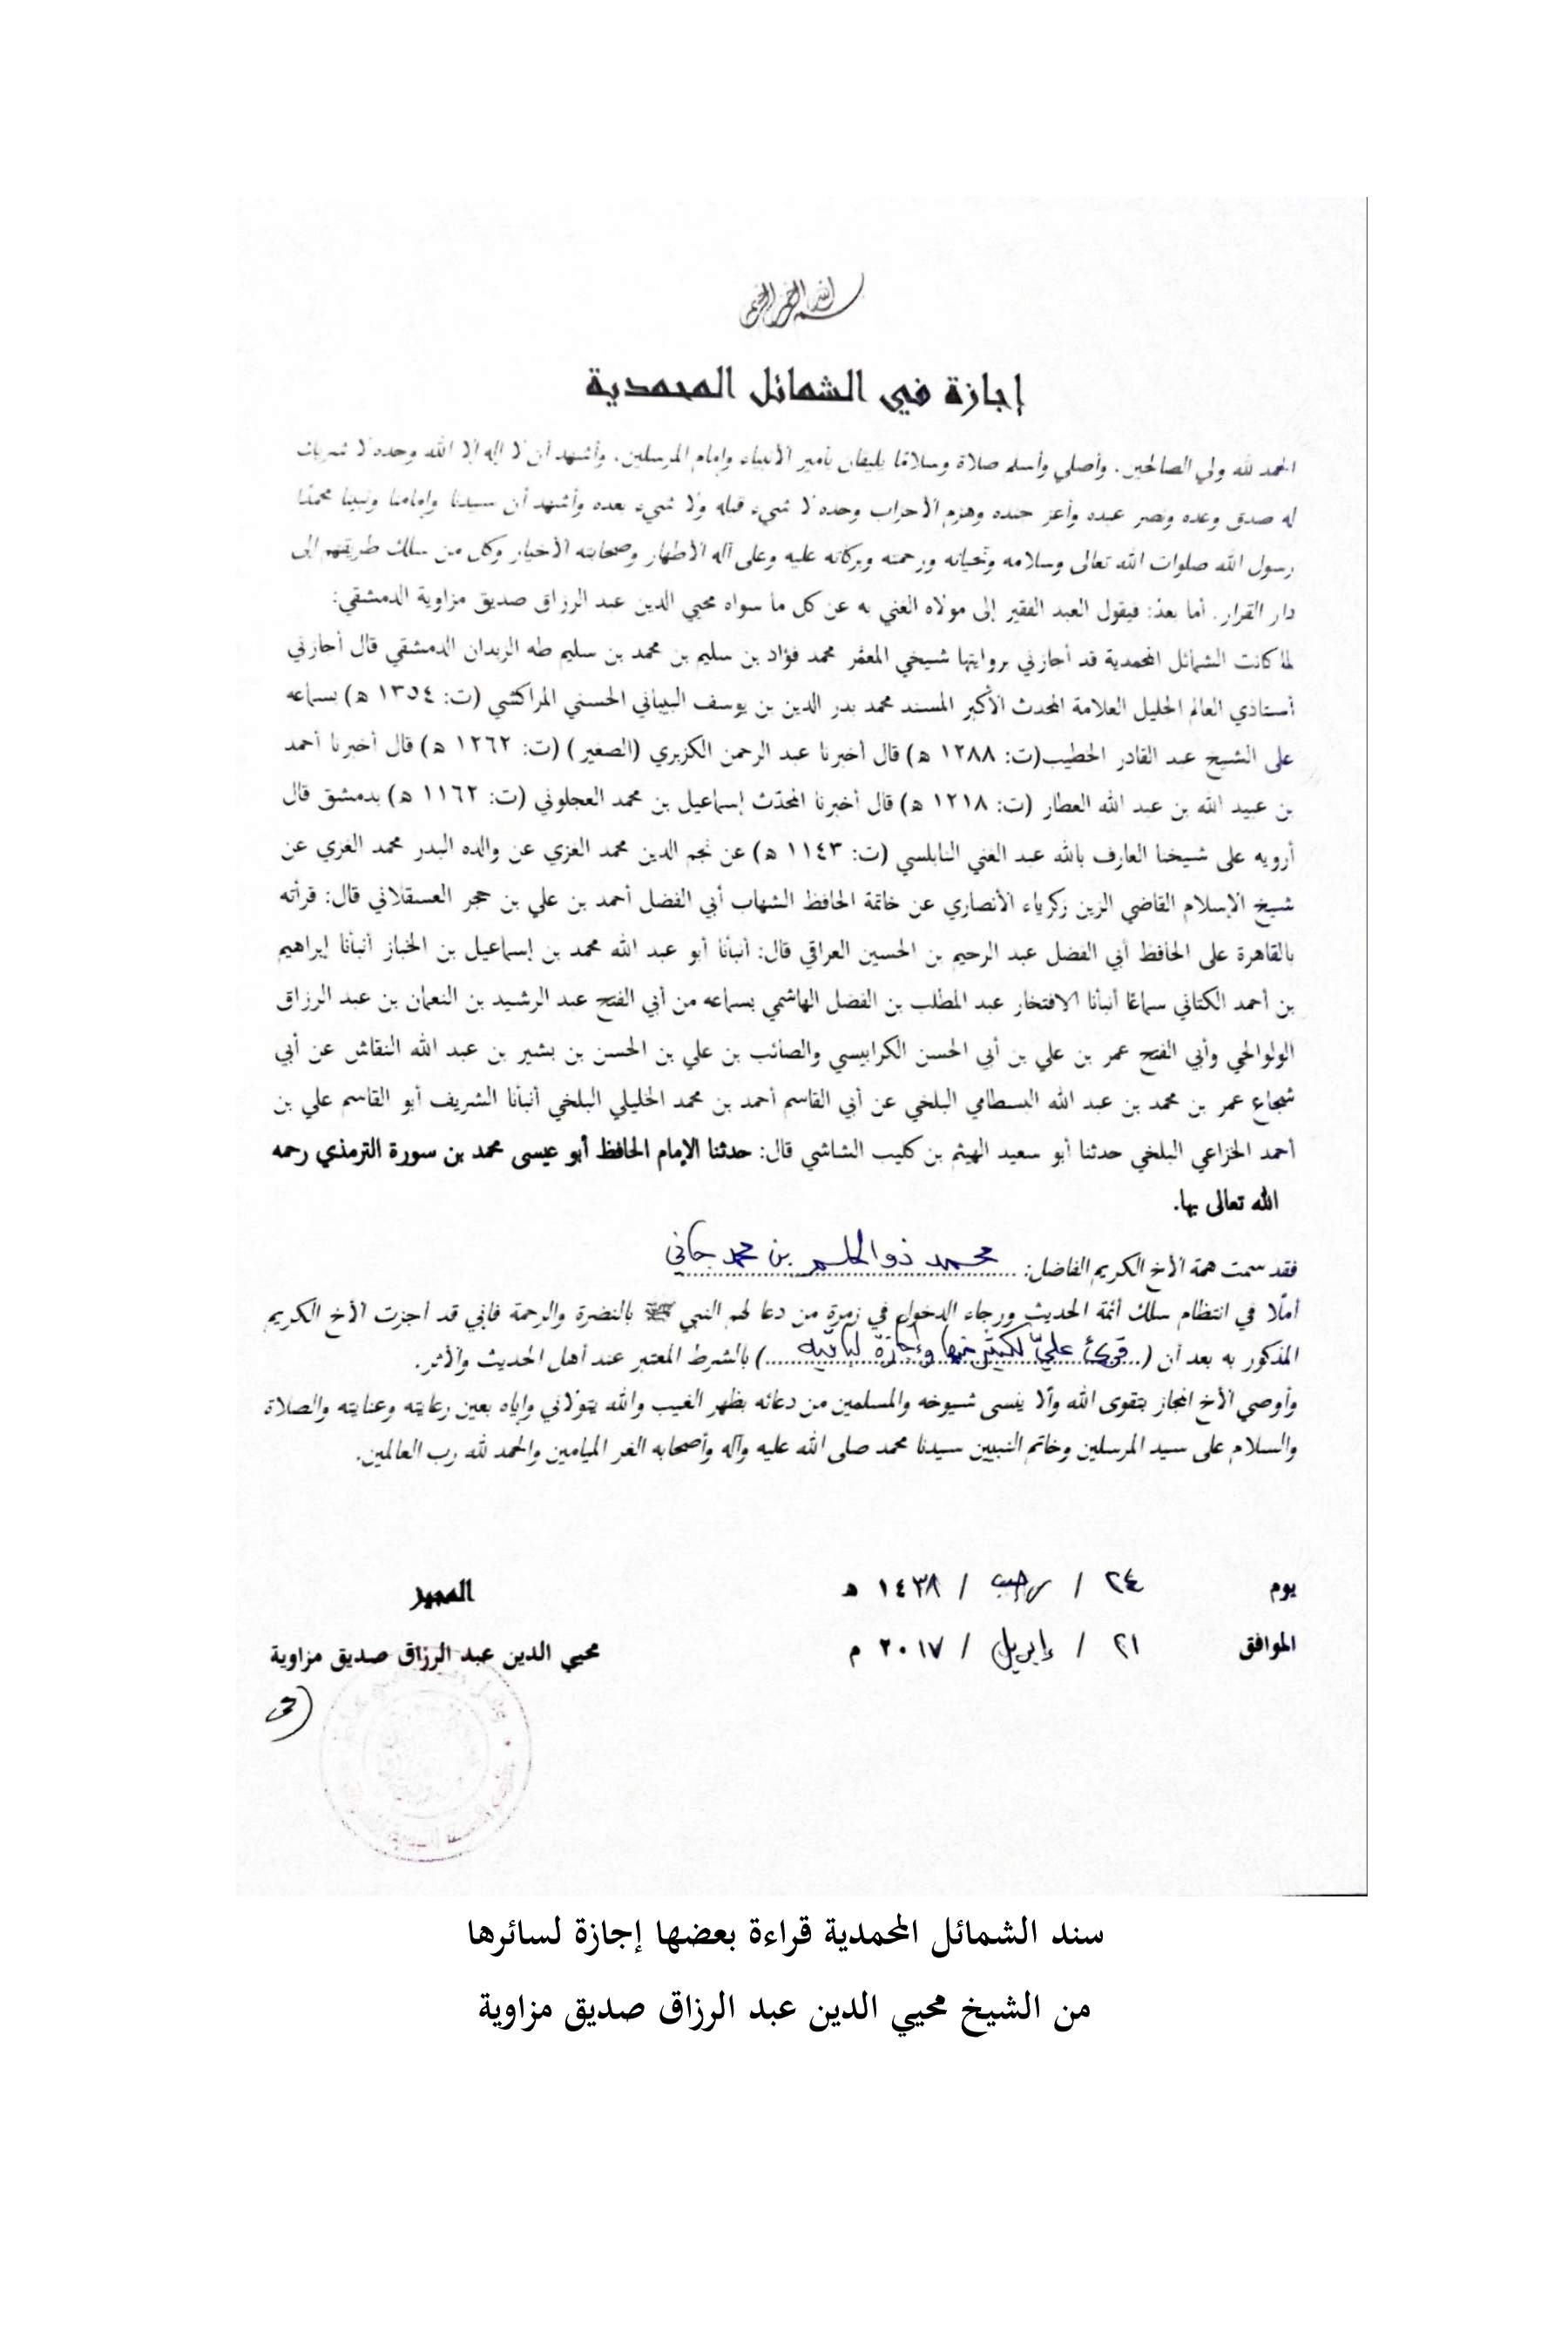 بسم الله الرحمن الرحيم
إجازة في الشمائل المحمدية
الحمد لله ولي الصالحين. وأصلي وأسلم صلاة وسلامًا يليقان بأمير الأنبياء وإمام المرسلين. وأشهد أن لا إله إلا الله وحده لا شريك
له صدق وعده ونصر عبده وأعز جنده وهزم الأحزاب وحده لا شيء قبله ولا شيء بعده وأشهد أن سيدنا وإمامنا ونبينا محمدًا
رسول الله صلوات الله تعالى وسلامه وتحياته ورحمته وبركاته عليه وعلى آله الأطهار وصحابته الأخيار وكل من سلك طريقهم إلى
دار القرار. أما بعدُ: فيقول العبد الفقير إلى مولاه الغني به عن كل ما سواه محيي الدين عبد الرزاق صديق مزاوية الدمشقي:
لما كانت الشمائل المحمدية قد أجازني بروايتها شيخي المعمَّر محمد فؤاد بن سليم بن محمد بن سليم طه الزبدان الدمشقي قال أجازني
أستاذي العالم الجليل العلامة المحدث الأكبر المسند محمد بدر الدين بن يوسف البيباني الحسني المراكشي (ت: ١٣٥٤ هـ) بسماعه
على الشيخ عبد القادر الخطيب(ت: ١٢٨٨ هـ) قال أخبرنا عبد الرحمن الكزبري (الصغير) (ت: ١٢٦٢ هـ) قال أخبرنا أحمد
بن عبيد الله بن عبد الله العطار (ت: ١٢١٨ هـ) قال أخبرنا المحدّث إسماعيل بن محمد العجلوني (ت: ١١٦٢ هـ) بدمشق قال
أرويه على شيخنا العارف بالله عبد الغني النابلسي (ت: ١١٤٣ هـ) عن نجم الدين محمد الغزي عن والده البدر محمد الغزي عن
شيخ الإسلام القاضي الزين زكرياء الأنصاري عن خاتمة الحافظ الشهاب أبي الفضل أحمد بن علي بن حجر العسقلاني قال: قرأته
بالقاهرة على الحافظ أبي الفضل عبد الرحيم بن الحسين العراقي قال: أنبأنا أبو عبد الله محمد بن إسماعيل بن الخباز أنبأنا إبراهيم
بن أحمد الكتاني سماعًا أنبأنا الافتخار عبد المطلب بن الفضل الهاشمي بسماعه من أبي الفتح عبد الرشيد بن النعمان بن عبد الرزاق
الولوالجي وأبي الفتح عمر بن علي بن أبي الحسن الكرابيسي والصائب بن علي بن الحسن بن بشير بن عبد الله النقاش عن أبي
شجاع عمر بن محمد بن عبد الله البسطامي البلخي عن أبي القاسم أحمد بن محمد الخليلي البلخي أنبأنا الشريف أبو القاسم علي بن
أحمد الخزاعي البلخي حدثنا أبو سعيد الهيثم بن كليب الشاشي قال: حدثنا الإمام الحافظ أبو عيسى محمد بن سورة الترمذي رحمه
الله تعالى بها.
فقد سمت همة الأخ الكريم الفاضل: محمد ذو الحلم بن محمد جاني
أملًا في انتظام سلك أئمة الحديث ورجاء الدخول في زمرة من دعا لهم النبي ﷺ بالنضرة والرحمة فإني قد أجزت الأخ الكريم
المذكور به بعد أن (قرئ عليّ لكثير منها وإجازة لباقيه) بالشرط المعتبر عند أهل الحديث والأثر.
وأوصي الأخ المجاز بتقوى الله وألّا ينسى شيوخه والمسلمين من دعائه بظهر الغيب والله يتولاني وإياه بعين رعايته وعنايته والصلاة
والسلام على سيد المرسلين وخاتم النبيين سيدنا محمد صلى الله عليه وآله وأصحابه الغر الميامين والحمد لله رب العالمين.
يوم ٢٤ / رجب / ١٤٣٨ هـ
الموافق ٢١ / إبريل / ٢٠١٧ م
المجيز
محيي الدين عبد الرزاق صديق مزاوية
سند الشمائل المحمدية قراءة بعضها إجازة لسائرها
من الشيخ محيي الدين عبد الرزاق صديق مزاوية